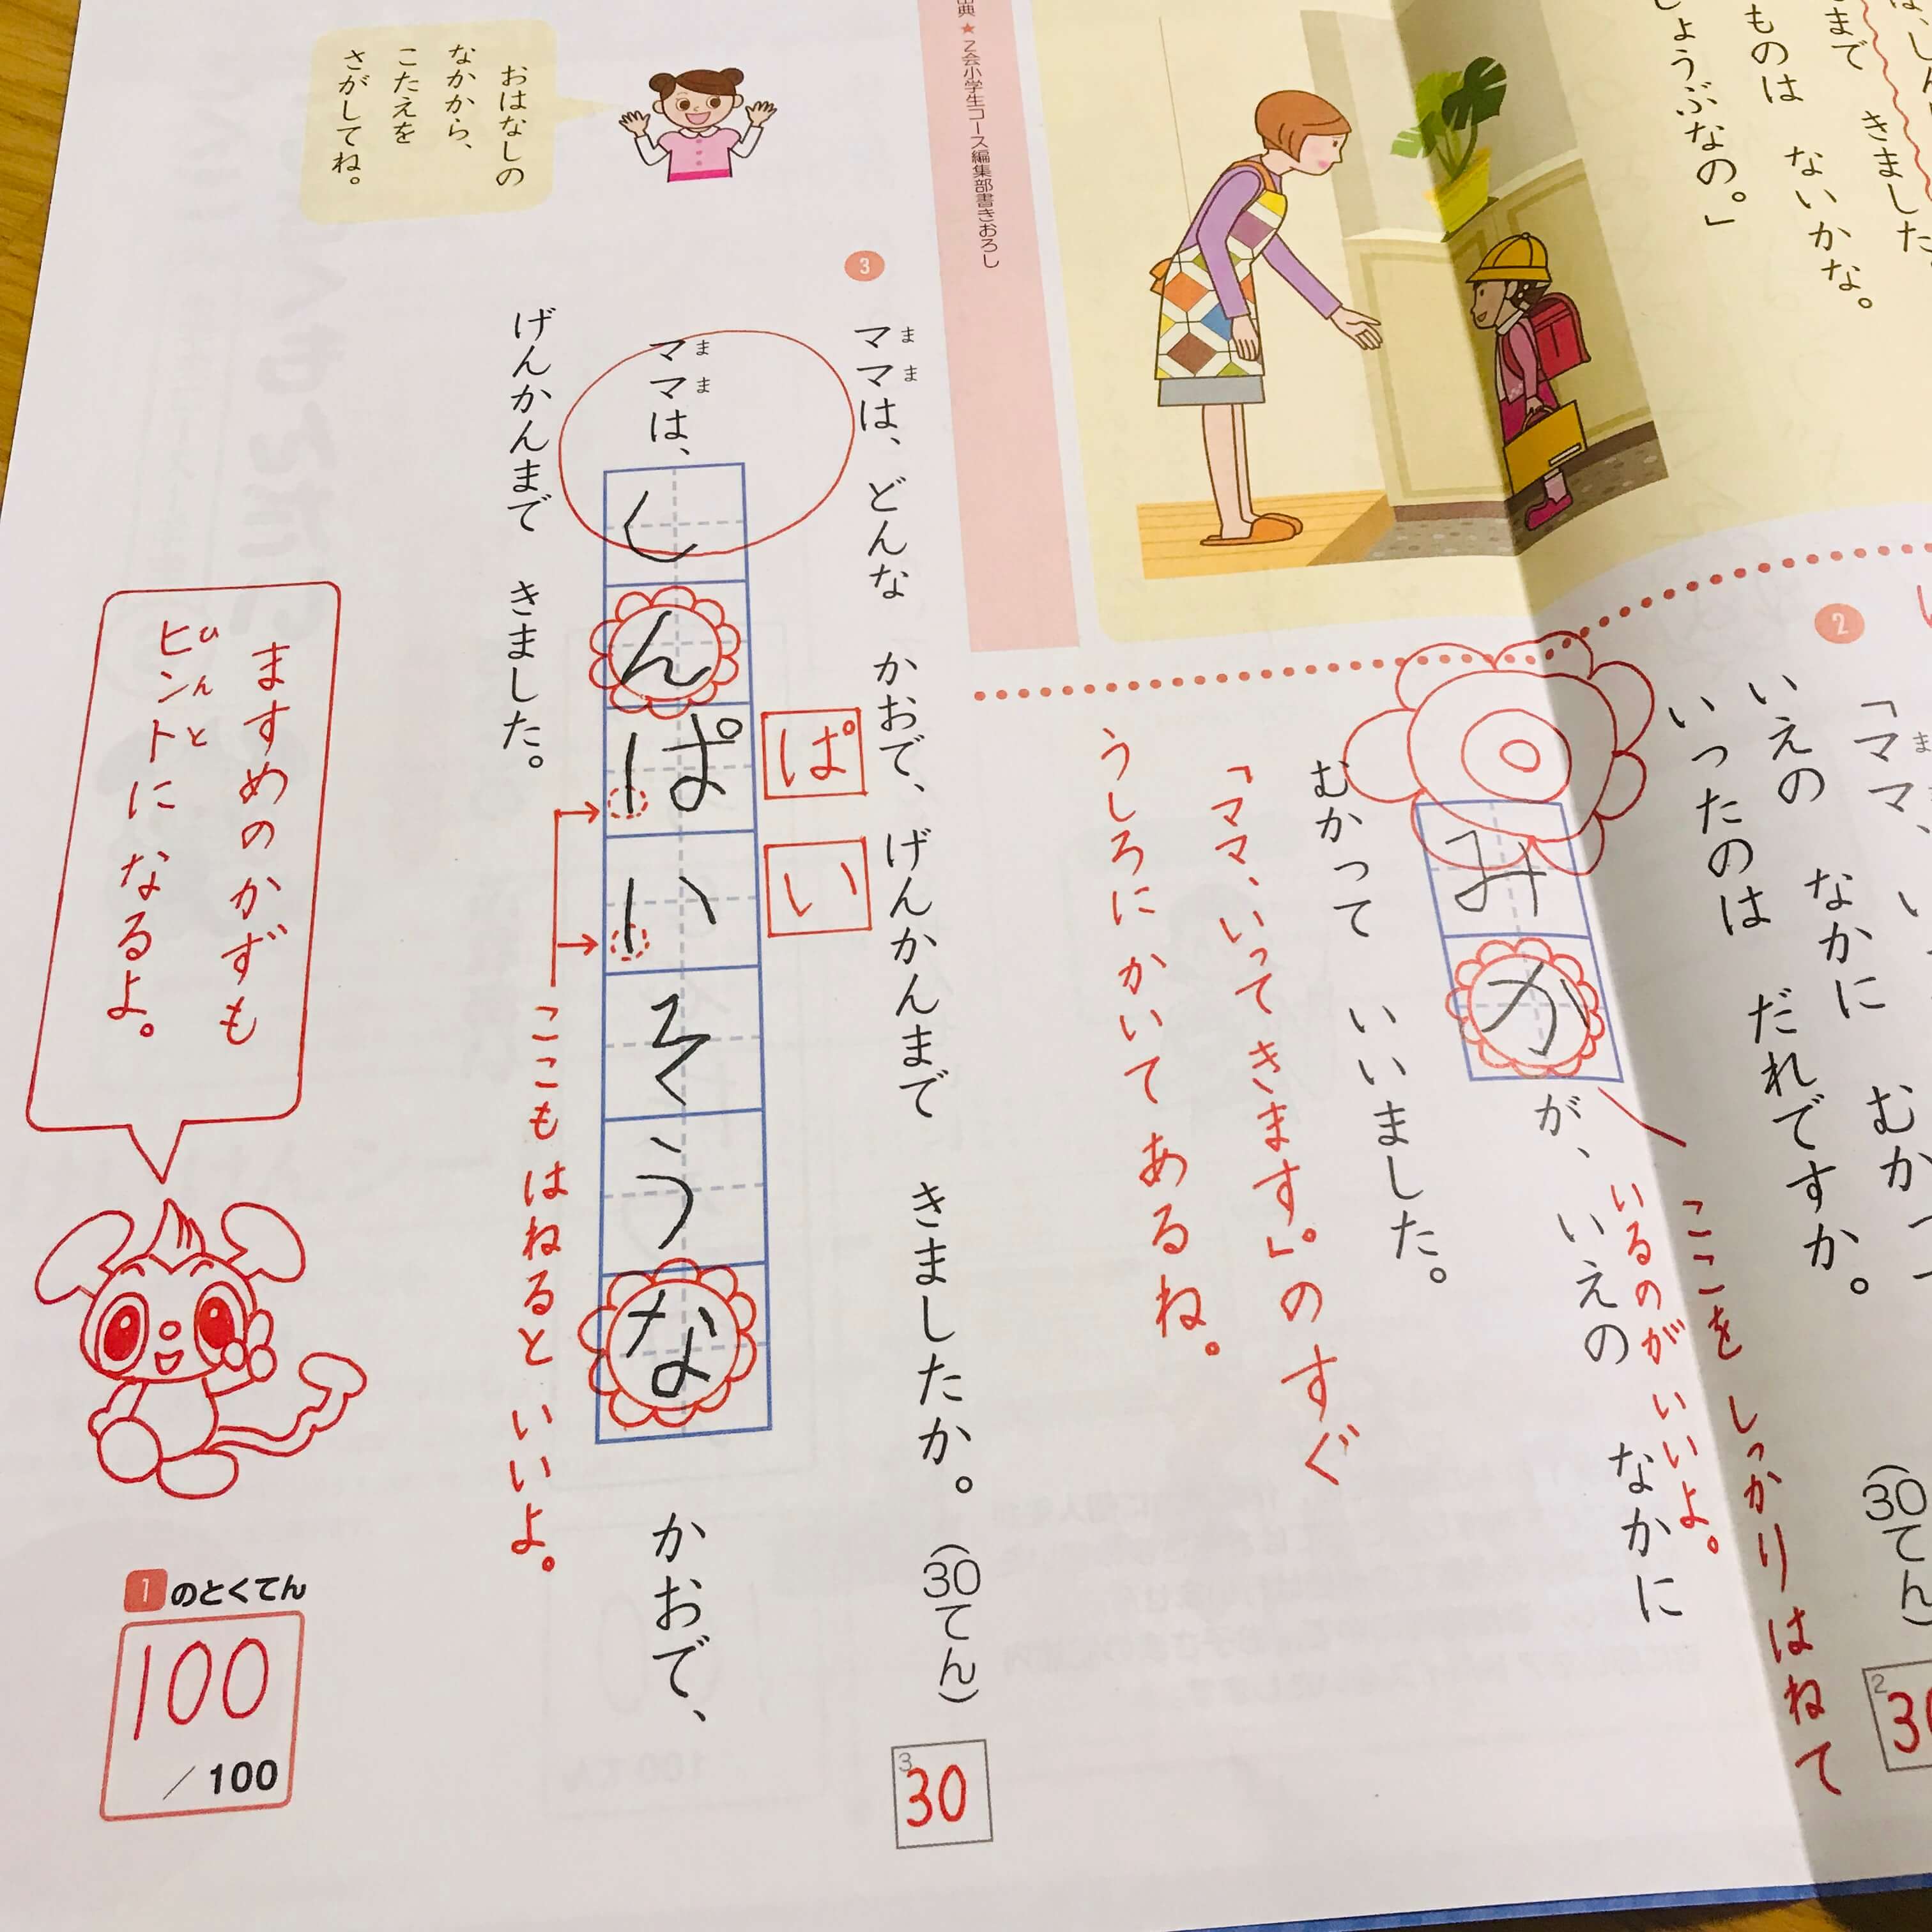 きました
まで
ものは ないかな。
しょうぶなの。」
出典★Z会小学生コース編集部書きおろし
おはなしの
なかから、
こたえを
さがしてね。
2
いえの なかに むかって
いったのは だれですか。
(30てん)
2
みかが、いえの なかに
むかって いいました。
ここを しっかりはねて
いるのが いいよ。
「ママ、いって きます。」の すぐ
うしろに かいて あるね。
3
ママは、どんな かおで、げんかんまで きましたか。(30てん)
まま
3
30
ママは、しんぱいそうな かおで、
まま
げんかんまで きました。
ぱ
い
ここも はねると いいよ。
ますめの かずも
ヒントに なるよ。
ひんと
1のとくてん
100
/100